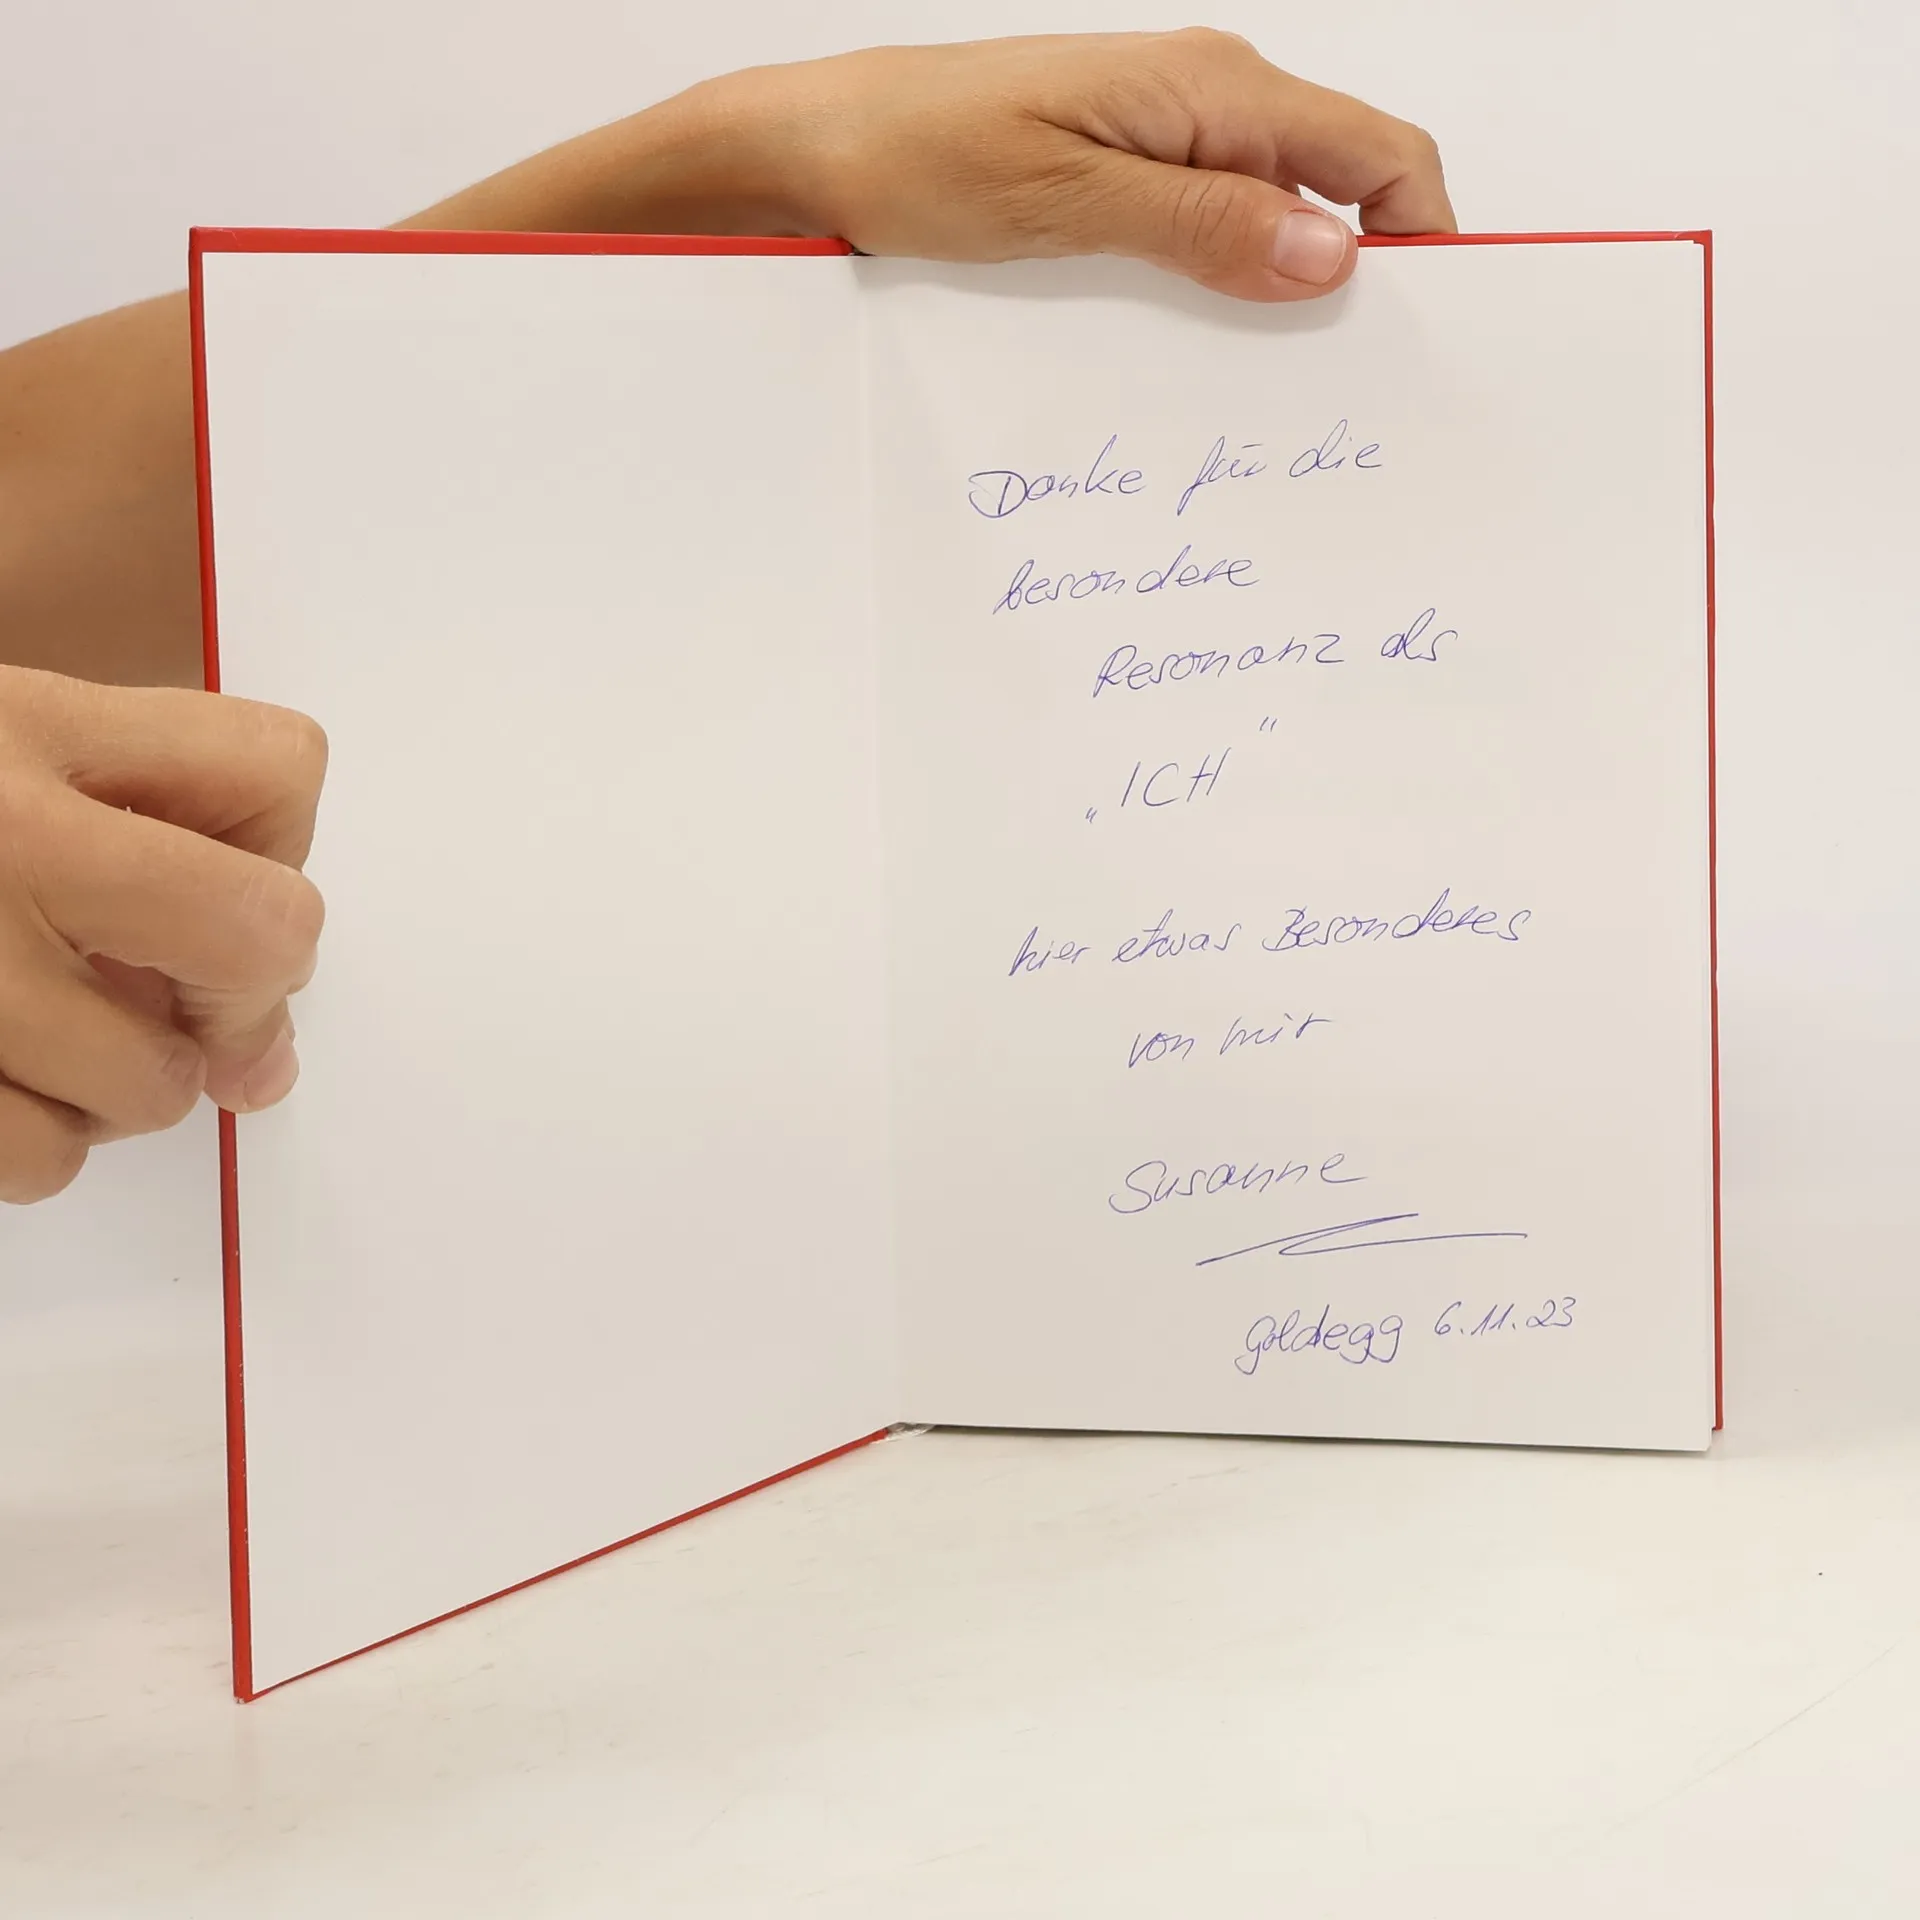 Danke für die
besondere
Resonanz als
„ICH“
hier etwas Besonderes
von mir
Susanne
Goldegg 6.11.23